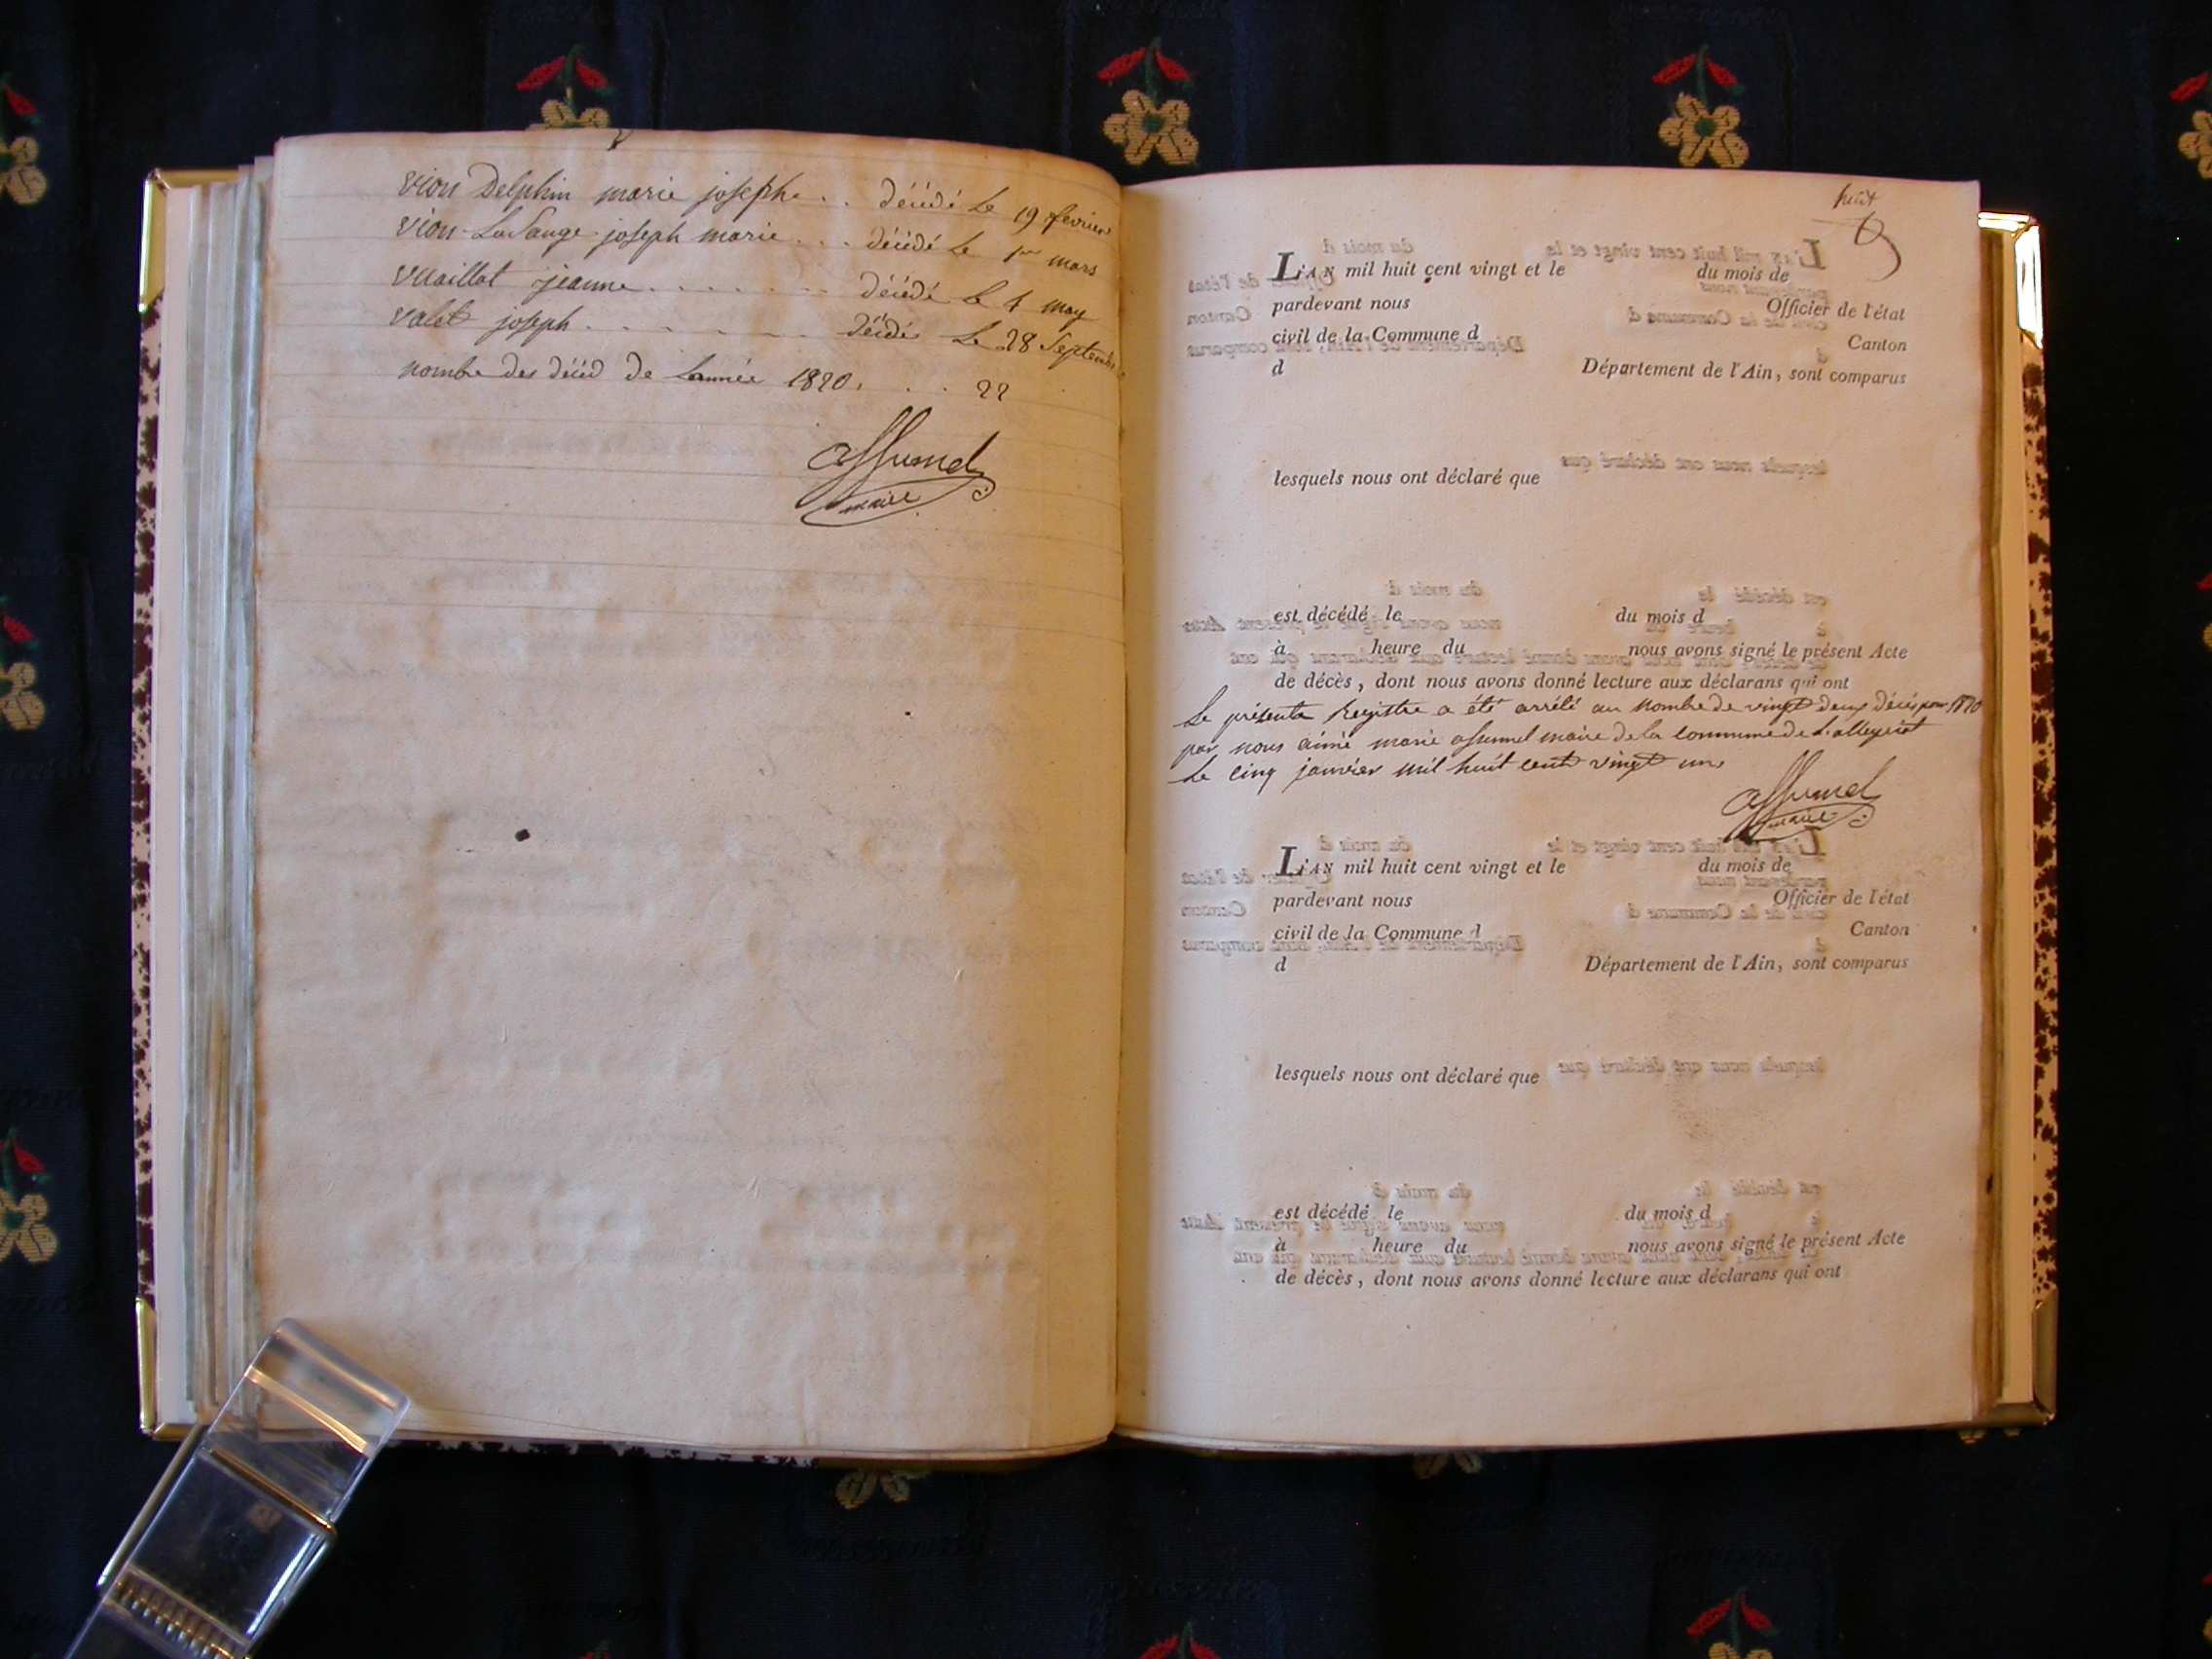 V
vion Delphin marie josephe . . décédé le 19 fevrier
vion-Lasauge joseph marie . . . décédé le 1er mars
vuaillat jeanne . . . . . . . . décédé le 4 may
valet joseph . . . . . . . . décédé le 28 Septembre
nombre des décéd de Lannée 1820 . . . 22
assumel
maire
huit
L'AN mil huit cent vingt et le du mois de
pardevant nous Officier de l'état
civil de la Commune d Canton
d Département de l'Ain, sont comparus
lesquels nous ont déclaré que
est décédé le du mois d
à heure du nous avons signé le présent Acte
de décès, dont nous avons donné lecture aux déclarans qui ont
Le présente Registre a été arrêté au nombre de vingt deux décès pour 1820
par nous aimé marie assumel maire de la commune de
Le cinq janvier mil huit cent vingt un
assumel
maire
L'AN mil huit cent vingt et le du mois de
pardevant nous Officier de l'état
civil de la Commune d Canton
d Département de l'Ain, sont comparus
lesquels nous ont déclaré que
est décédé le du mois d
à heure du nous avons signé le présent Acte
de décès, dont nous avons donné lecture aux déclarans qui ont